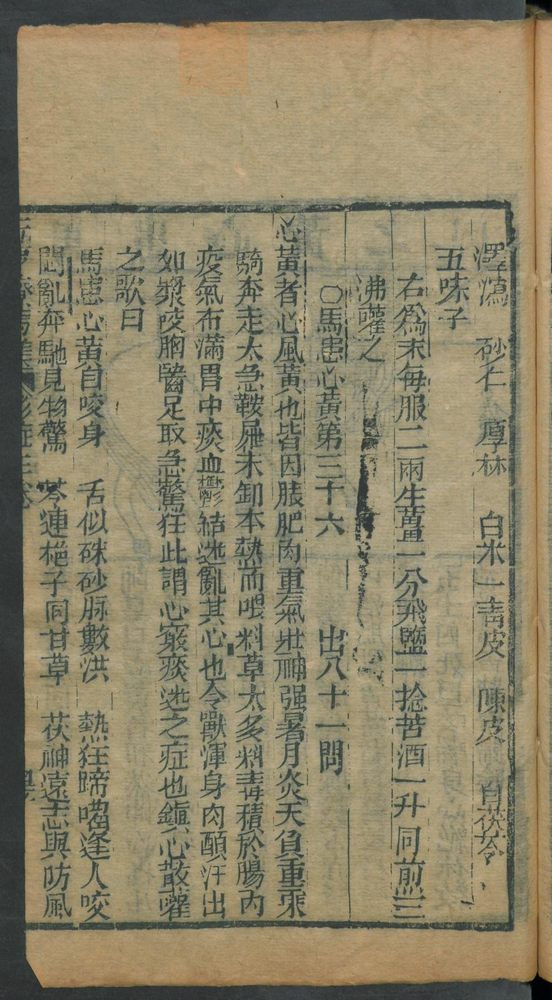 澤瀉 砂仁 厚林 白朮 青皮 陳皮 白茯苓
五味子
右為末每服二兩生薑一分飛鹽一捻苦酒一升同煎三
沸嚾之
〇馬患心黃第三十六 出八十一問
心黃者心風黃也皆因膘肥肉重氣壯神强暑月炎天負重乘
騎奔走太急鞍屜未卸本熱而喂料草太多料毒積於腸內
疫氣布滿胃中痰血鬱結迷亂其心也令獸渾身肉顫汗出
如漿咬胸嚙足取急驚狂此謂心竅痰迷之症也鎮心散嚾
之歌曰
馬患心黃自咬身 舌似硃砂脉數洪 熱狂蹄嚙逢人咬
悶亂奔馳見物驚 芩連梔子同甘草 茯神遠志與防風